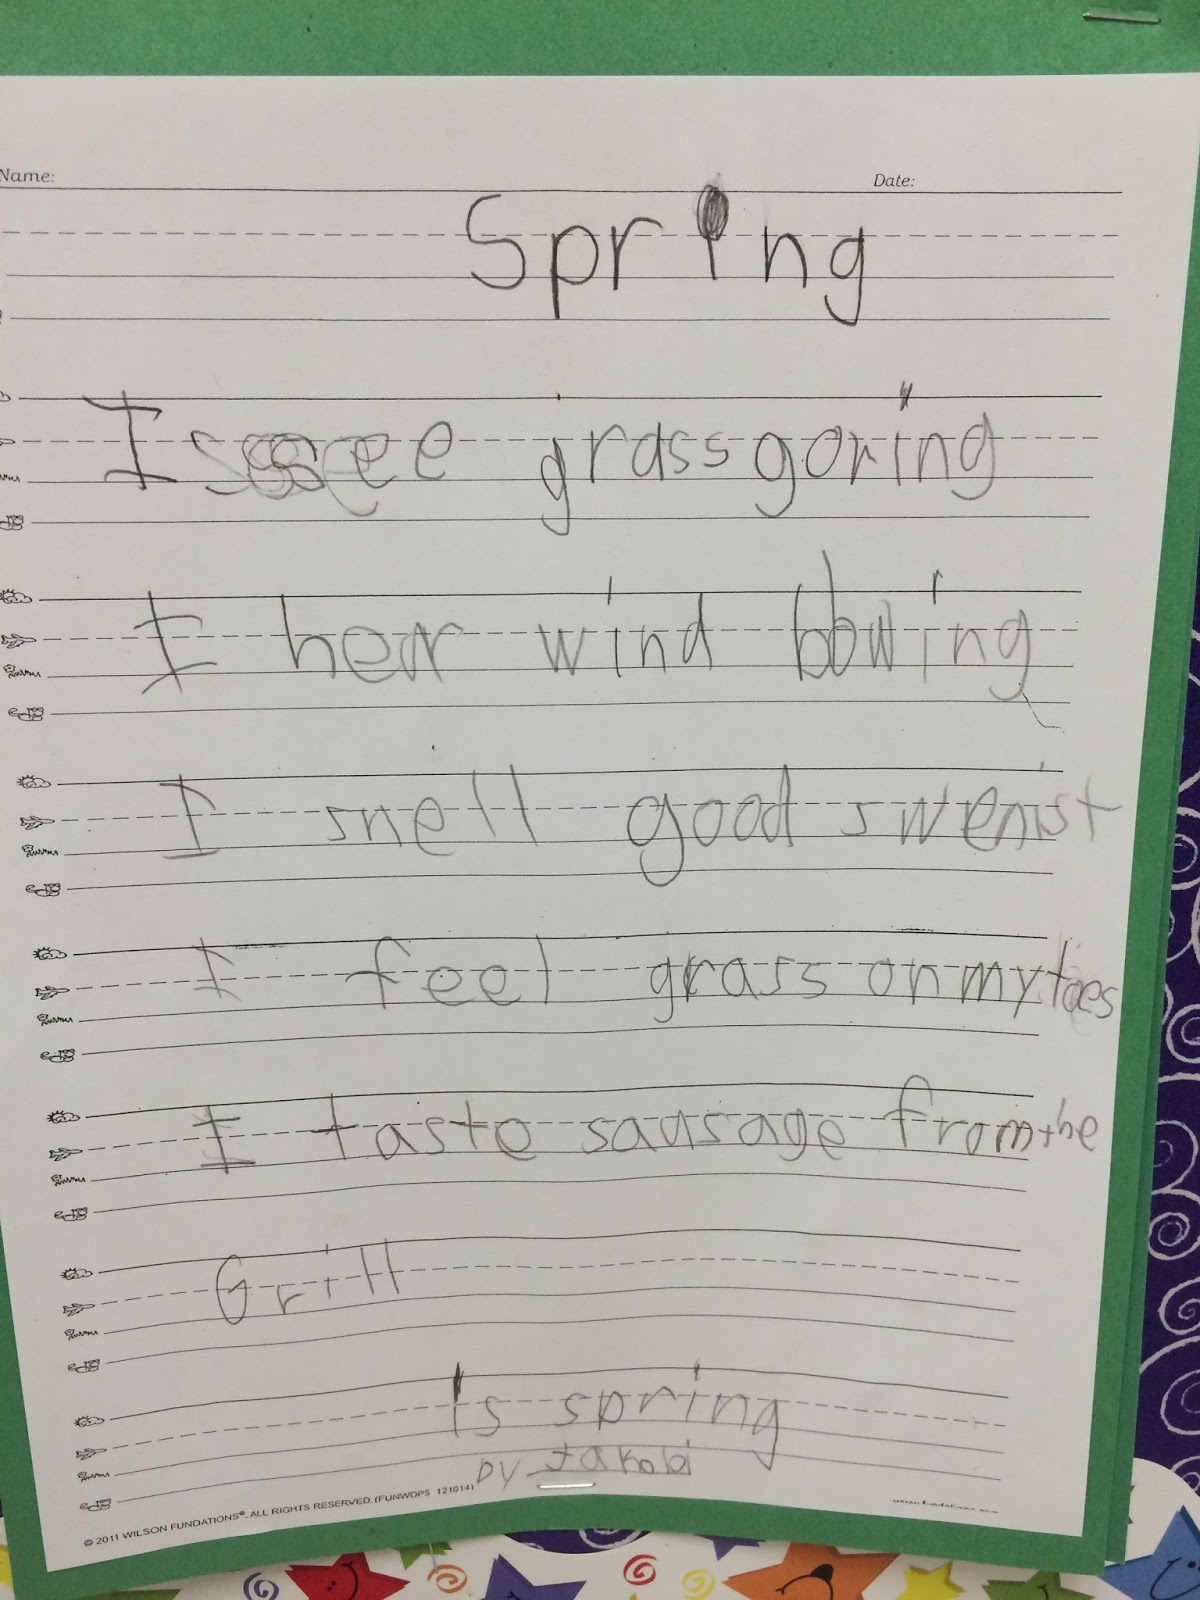 Name: Date:
Spring
I see grass goring
I hear wind blowing
I snell good swenist
I feel grass on my toes
I taste sausage from the
Grill
is spring
by Jakobi
© 2011 WILSON FUNDATIONS®. ALL RIGHTS RESERVED. (FUNWDPS 121014)